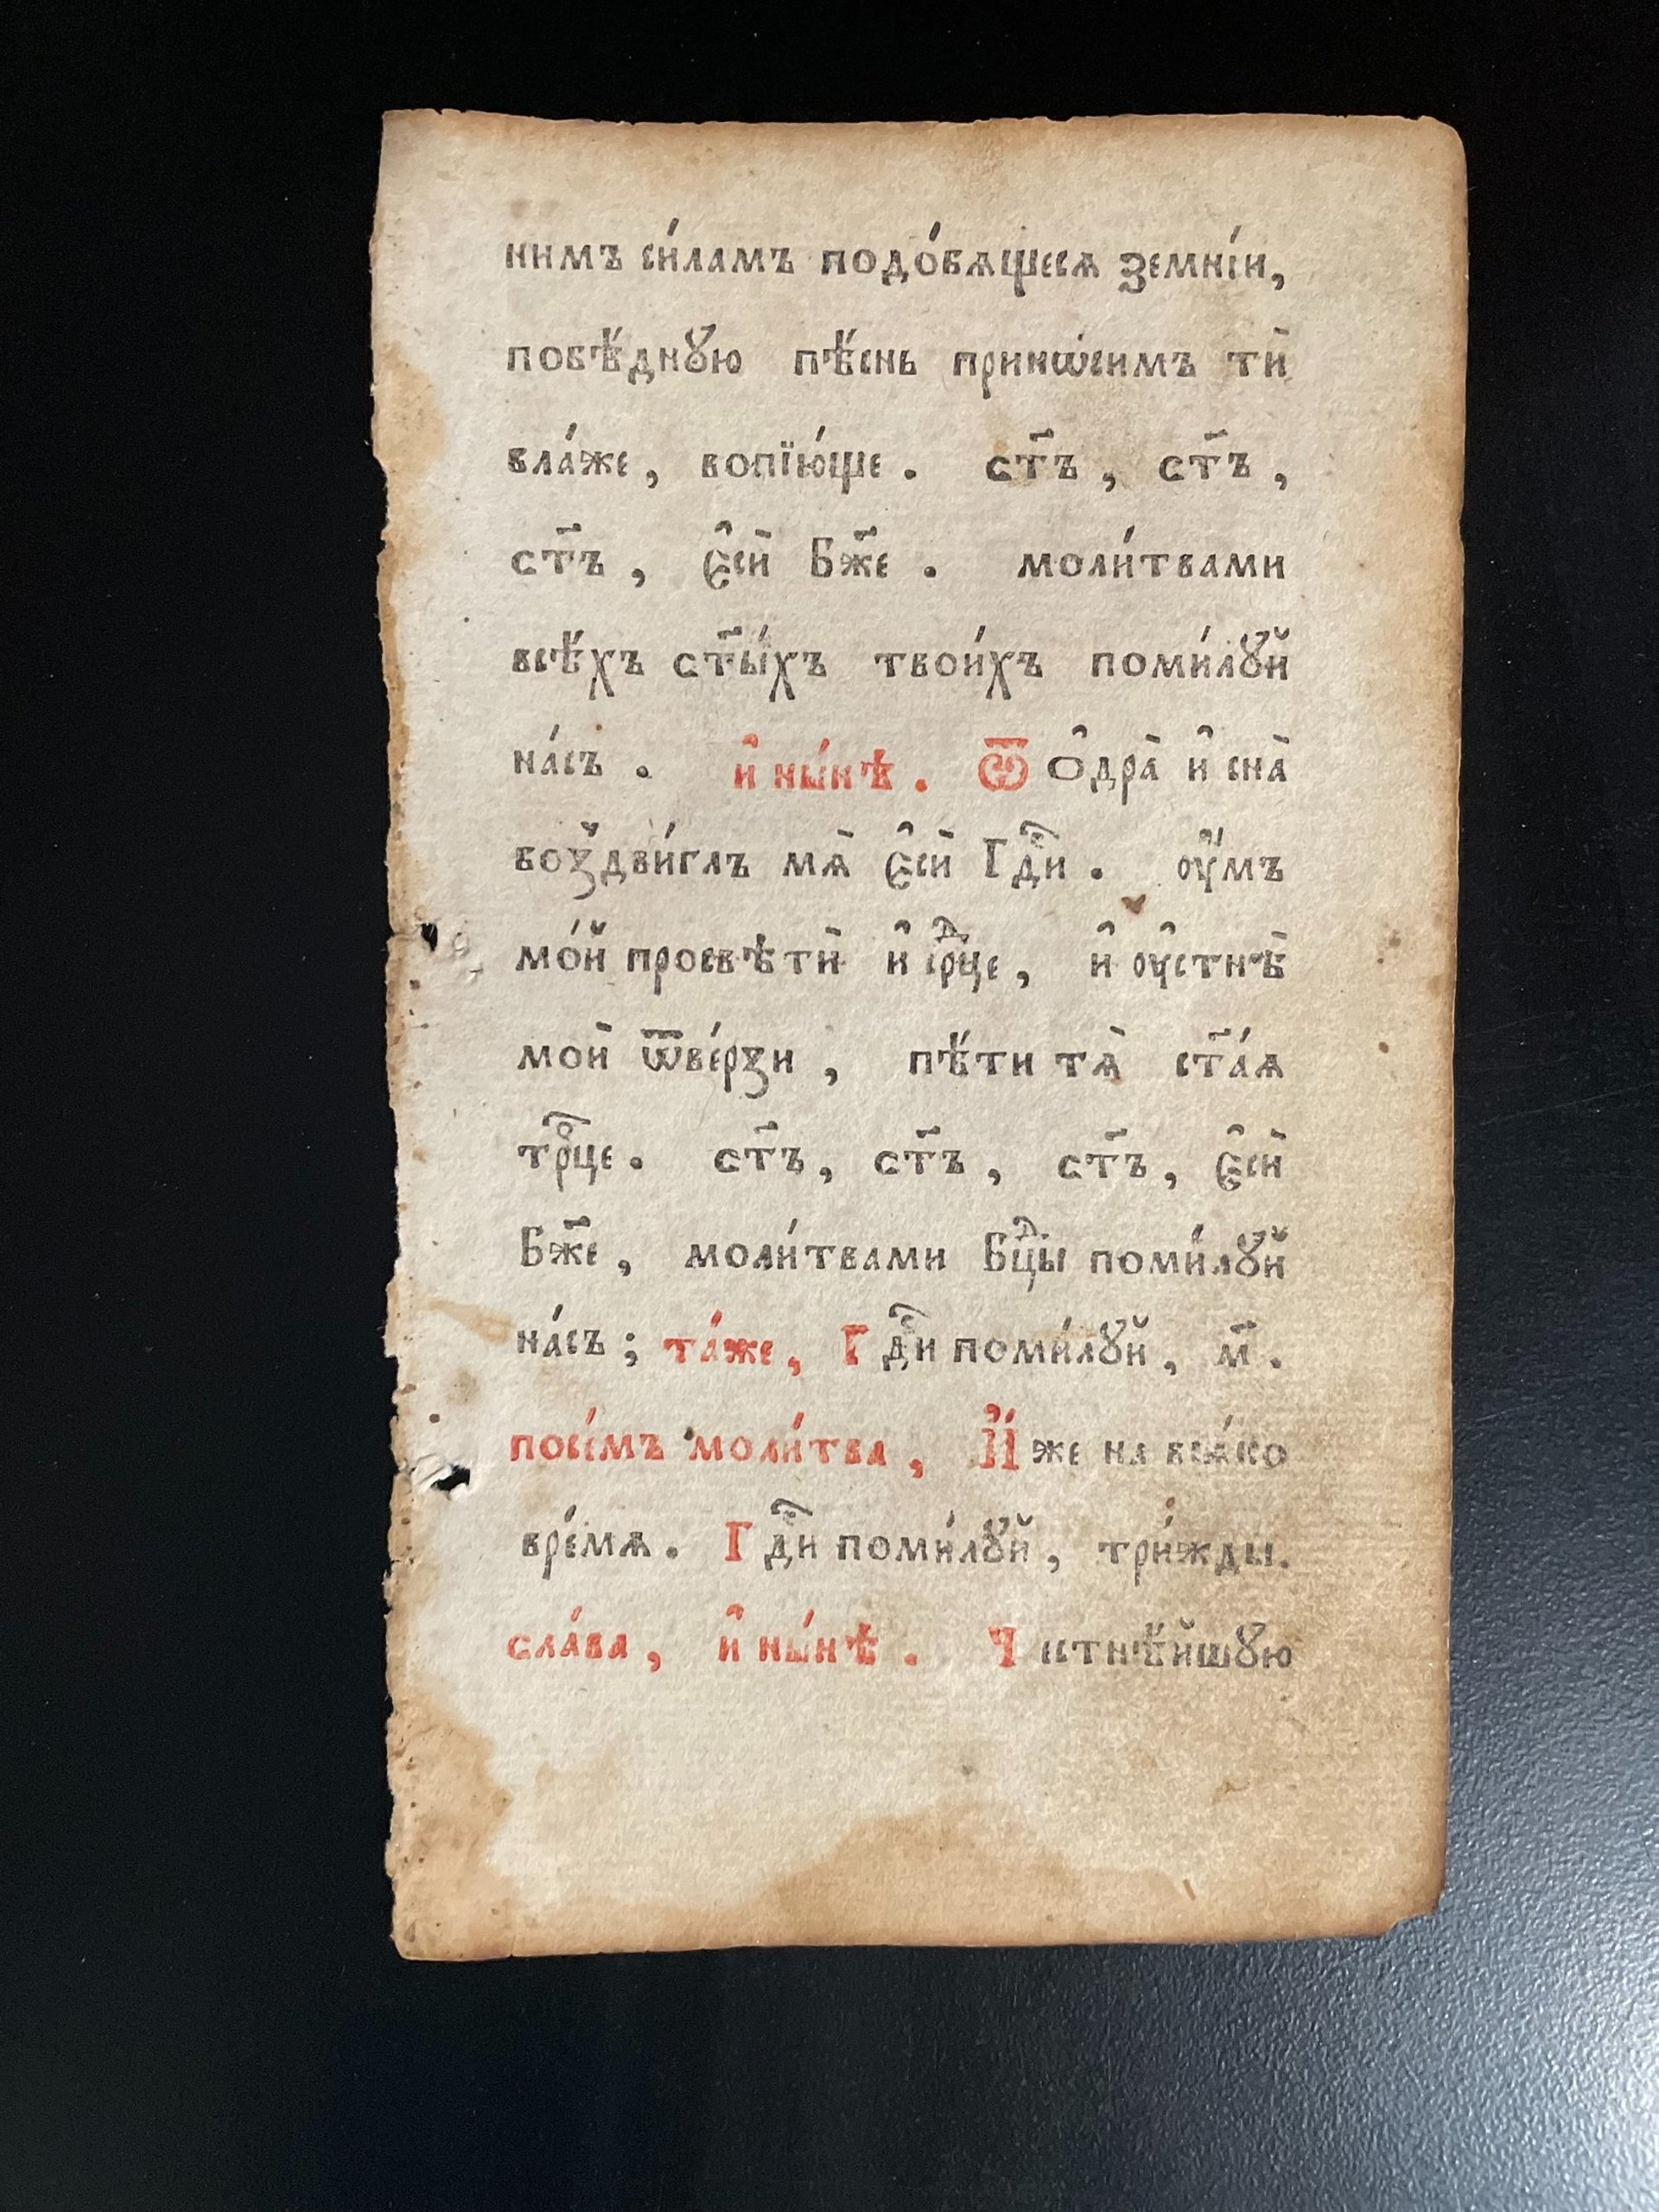 нимъ си́ламъ подо́бѧщесѧ земні́и,
побѣ́днꙋю пѣ́снь принѡ́симъ тѝ
бла́же, вопїю́ще. ст҃ъ, ст҃ъ,
ст҃ъ, є҆сѝ Бж҃е. моли́твами
всѣ́хъ ст҃ы́хъ твои́хъ поми́лꙋй
на́съ. и҆ ны́нѣ. Ѿ ѻ҆дра̀ и҆ сна̀
воздви́глъ мѧ̀ є҆сѝ Гдⷭ҇и. оу҆́мъ
мо́й просвѣтѝ и҆ срⷣце, и҆ оу҆стнѣ̀
моѝ ѿве́рзи, пѣ́ти тѧ̀ ст҃а́ѧ
трⷪ҇це. ст҃ъ, ст҃ъ, ст҃ъ, є҆сѝ
Бж҃е, моли́твами Бцⷣы поми́лꙋй
на́съ; та́же, Гдⷭ҇и поми́лꙋй, м҃.
посе́мъ моли́тва, И҆́же на всѧ́ко
вре́мѧ. Гдⷭ҇и поми́лꙋй, три́жды.
сла́ва, и҆ ны́нѣ. Честнѣ́йшꙋю